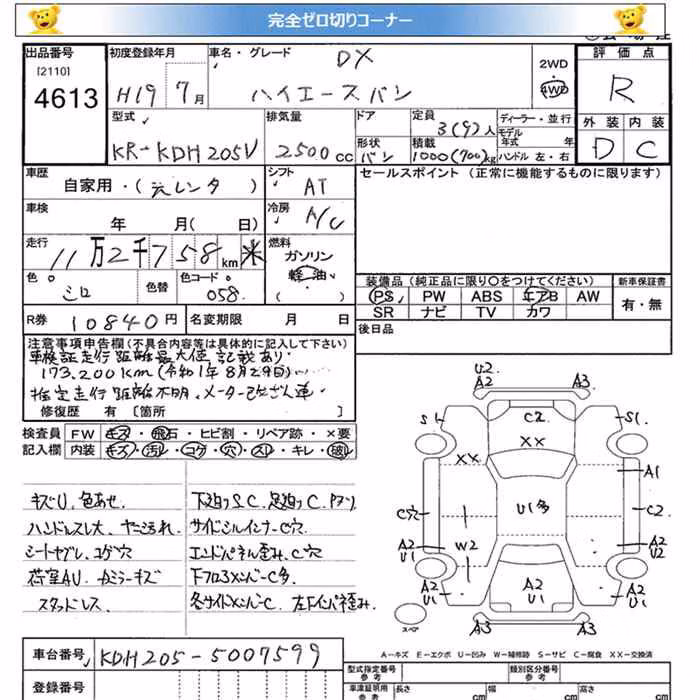 完全ゼロ切りコーナー
出品番号
[2110]
4613
初度登録年月
H19 7月
車名・グレード
DX
ハイエースバン
2WD
・
4WD
評価点
R
外装 内装
D C
型式
KR-KDH205V
排気量
2500cc
ドア
形状
バン
定員
3(9)人
積載
1000(700)kg
ディーラー・並行
モデル
年式 年
ハンドル 左・右
車歴
自家用・(元レンタ)
シフト
AT
車検
年 月(日)
冷房
A/C
走行
11万2千758km ※
燃料
ガソリン
軽油
( )
色
シロ
色替
色コード
058
R券 10840円
名変期限 月 日
セールスポイント (正常に機能するものに限ります)
装備品 (純正品に限り○をつけてください)
PS PW ABS エアB AW
SR ナビ TV カワ
新車保証書
有・無
後日品
注意事項申告欄(不具合内容等は具体的に記入して下さい)
車検証走行距離最大値記載あり
173,200km(令和1年8月29日)
推定走行距離不明、メーター改ざん車
修復歴 有 [箇所 ]
検査員 FW キズ・飛石・ヒビ割・リペア跡・×要
記入欄 内装 キズ・汚レ・コゲ・穴・スレ・キレ・破レ
キズU、色あせ
ハンドルスレ大、ヤニ汚れ
シートセグレ、コゲ穴
荷室AU
スタッドレス
下廻りS,C 足廻りC
サイドシルインナーC穴
エンドパネル歪み、C穴
下フロアメンバーC多
各サイドメンバーC
U2
A2
A3
S1
C2
S1
XX
XX
A1
C穴
U1多
C2
A2
U1
W2
A2
U2
A2
U1
A2
U1
A2
U1
A3
A3
スペア
A-キズ E-エクボ U-凹み W-補修跡 S-サビ C-腐食 XX-交換済
車台番号 KDH205-5007599
登録番号
型式指定番号
参考
類別区分番号
参考
車庫証明用
参考
長さ cm
幅 cm
高さ cm